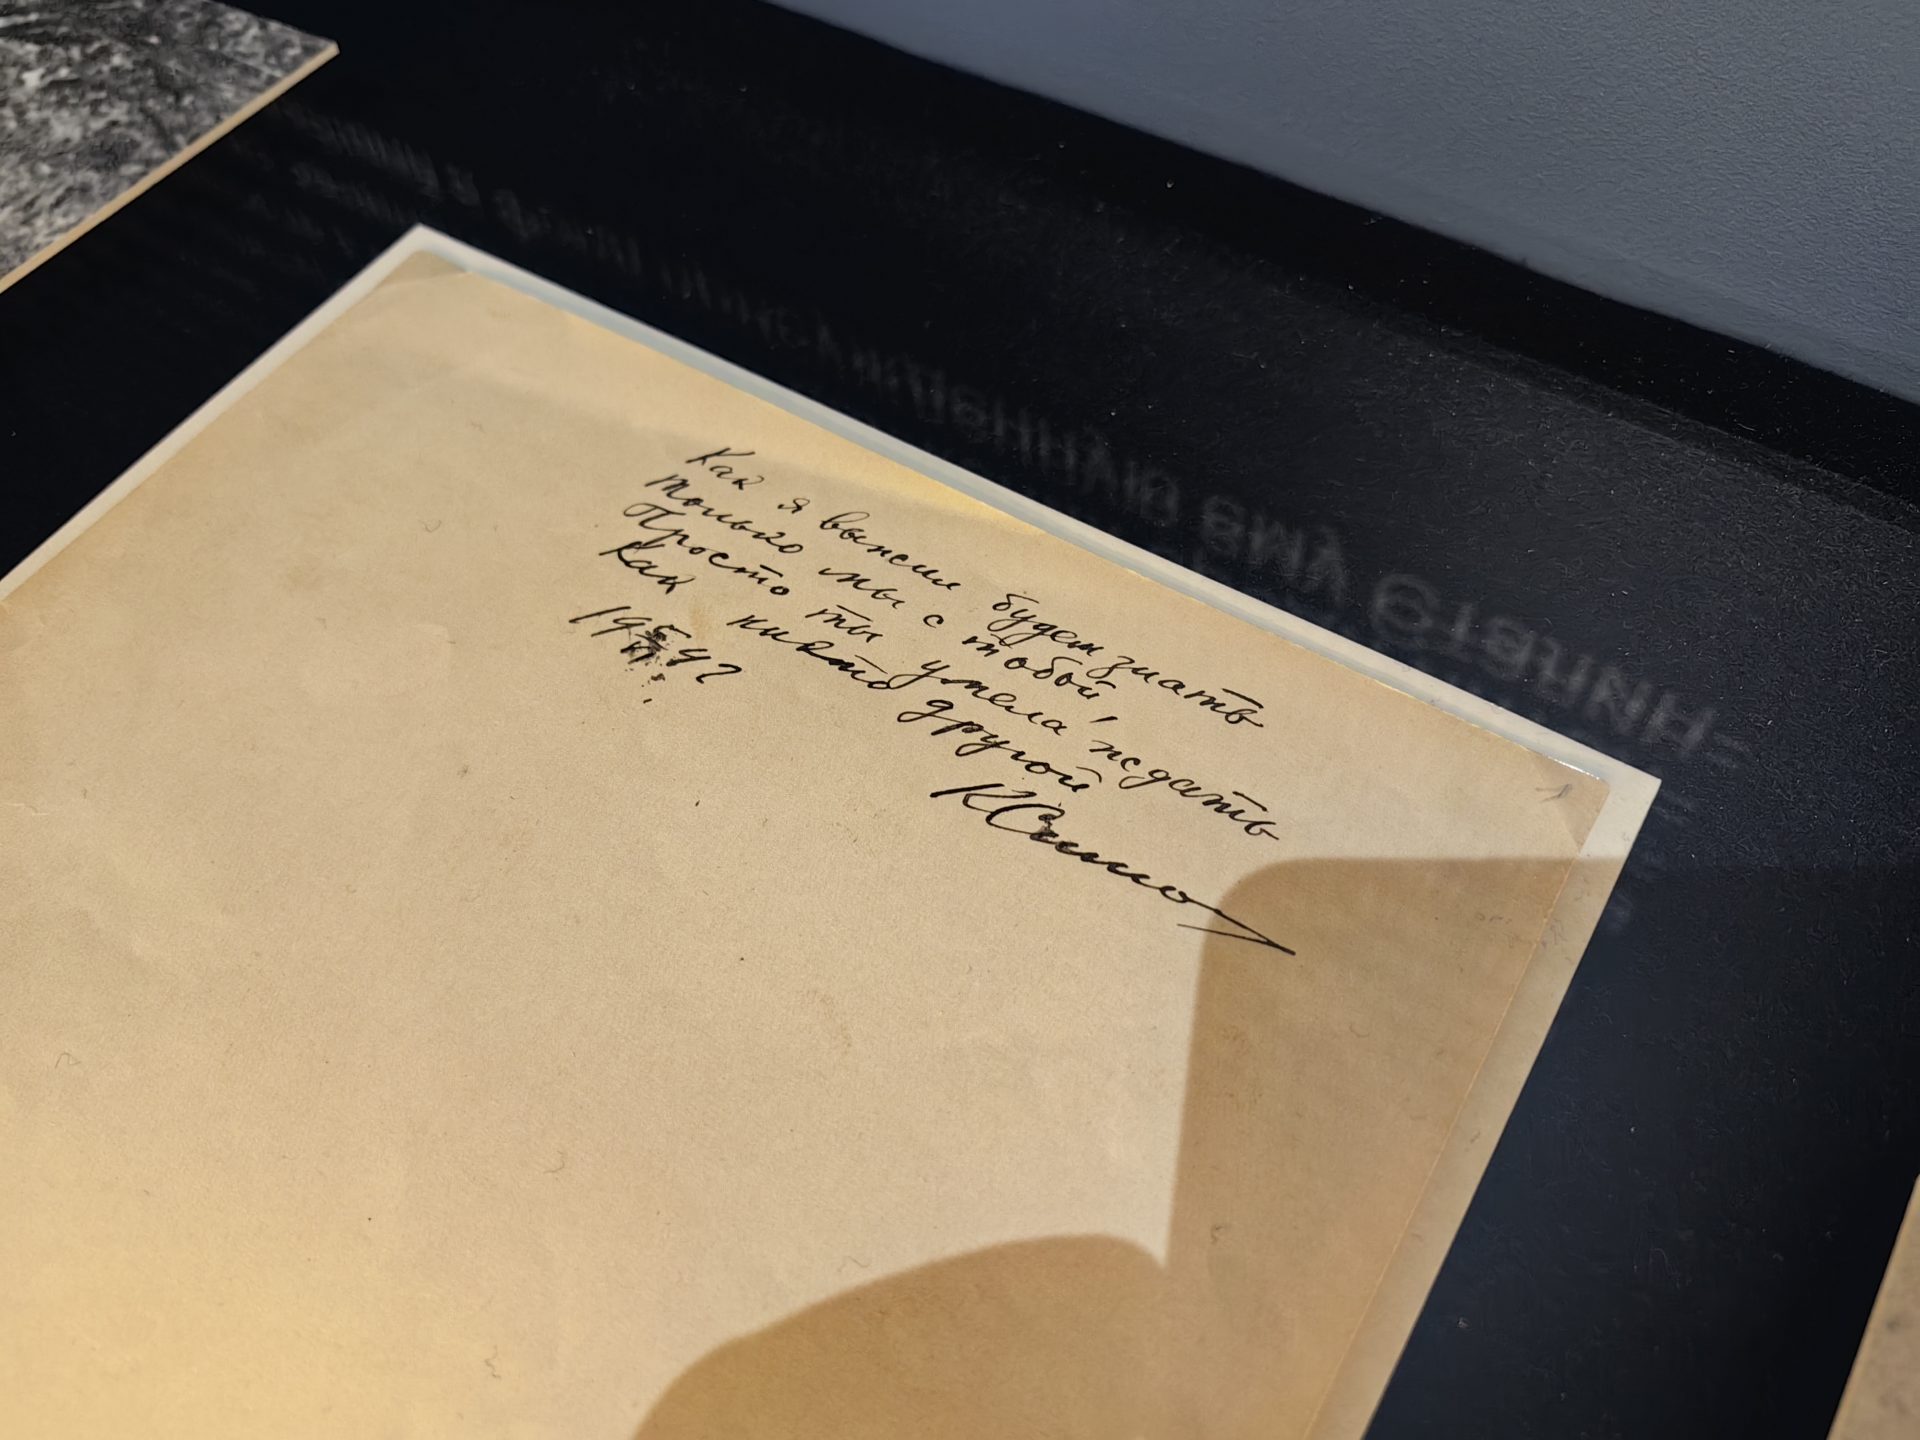 Как я выжил будем знать
только мы с тобой,
Просто ты умела ждать
Как никто другой
КСимо